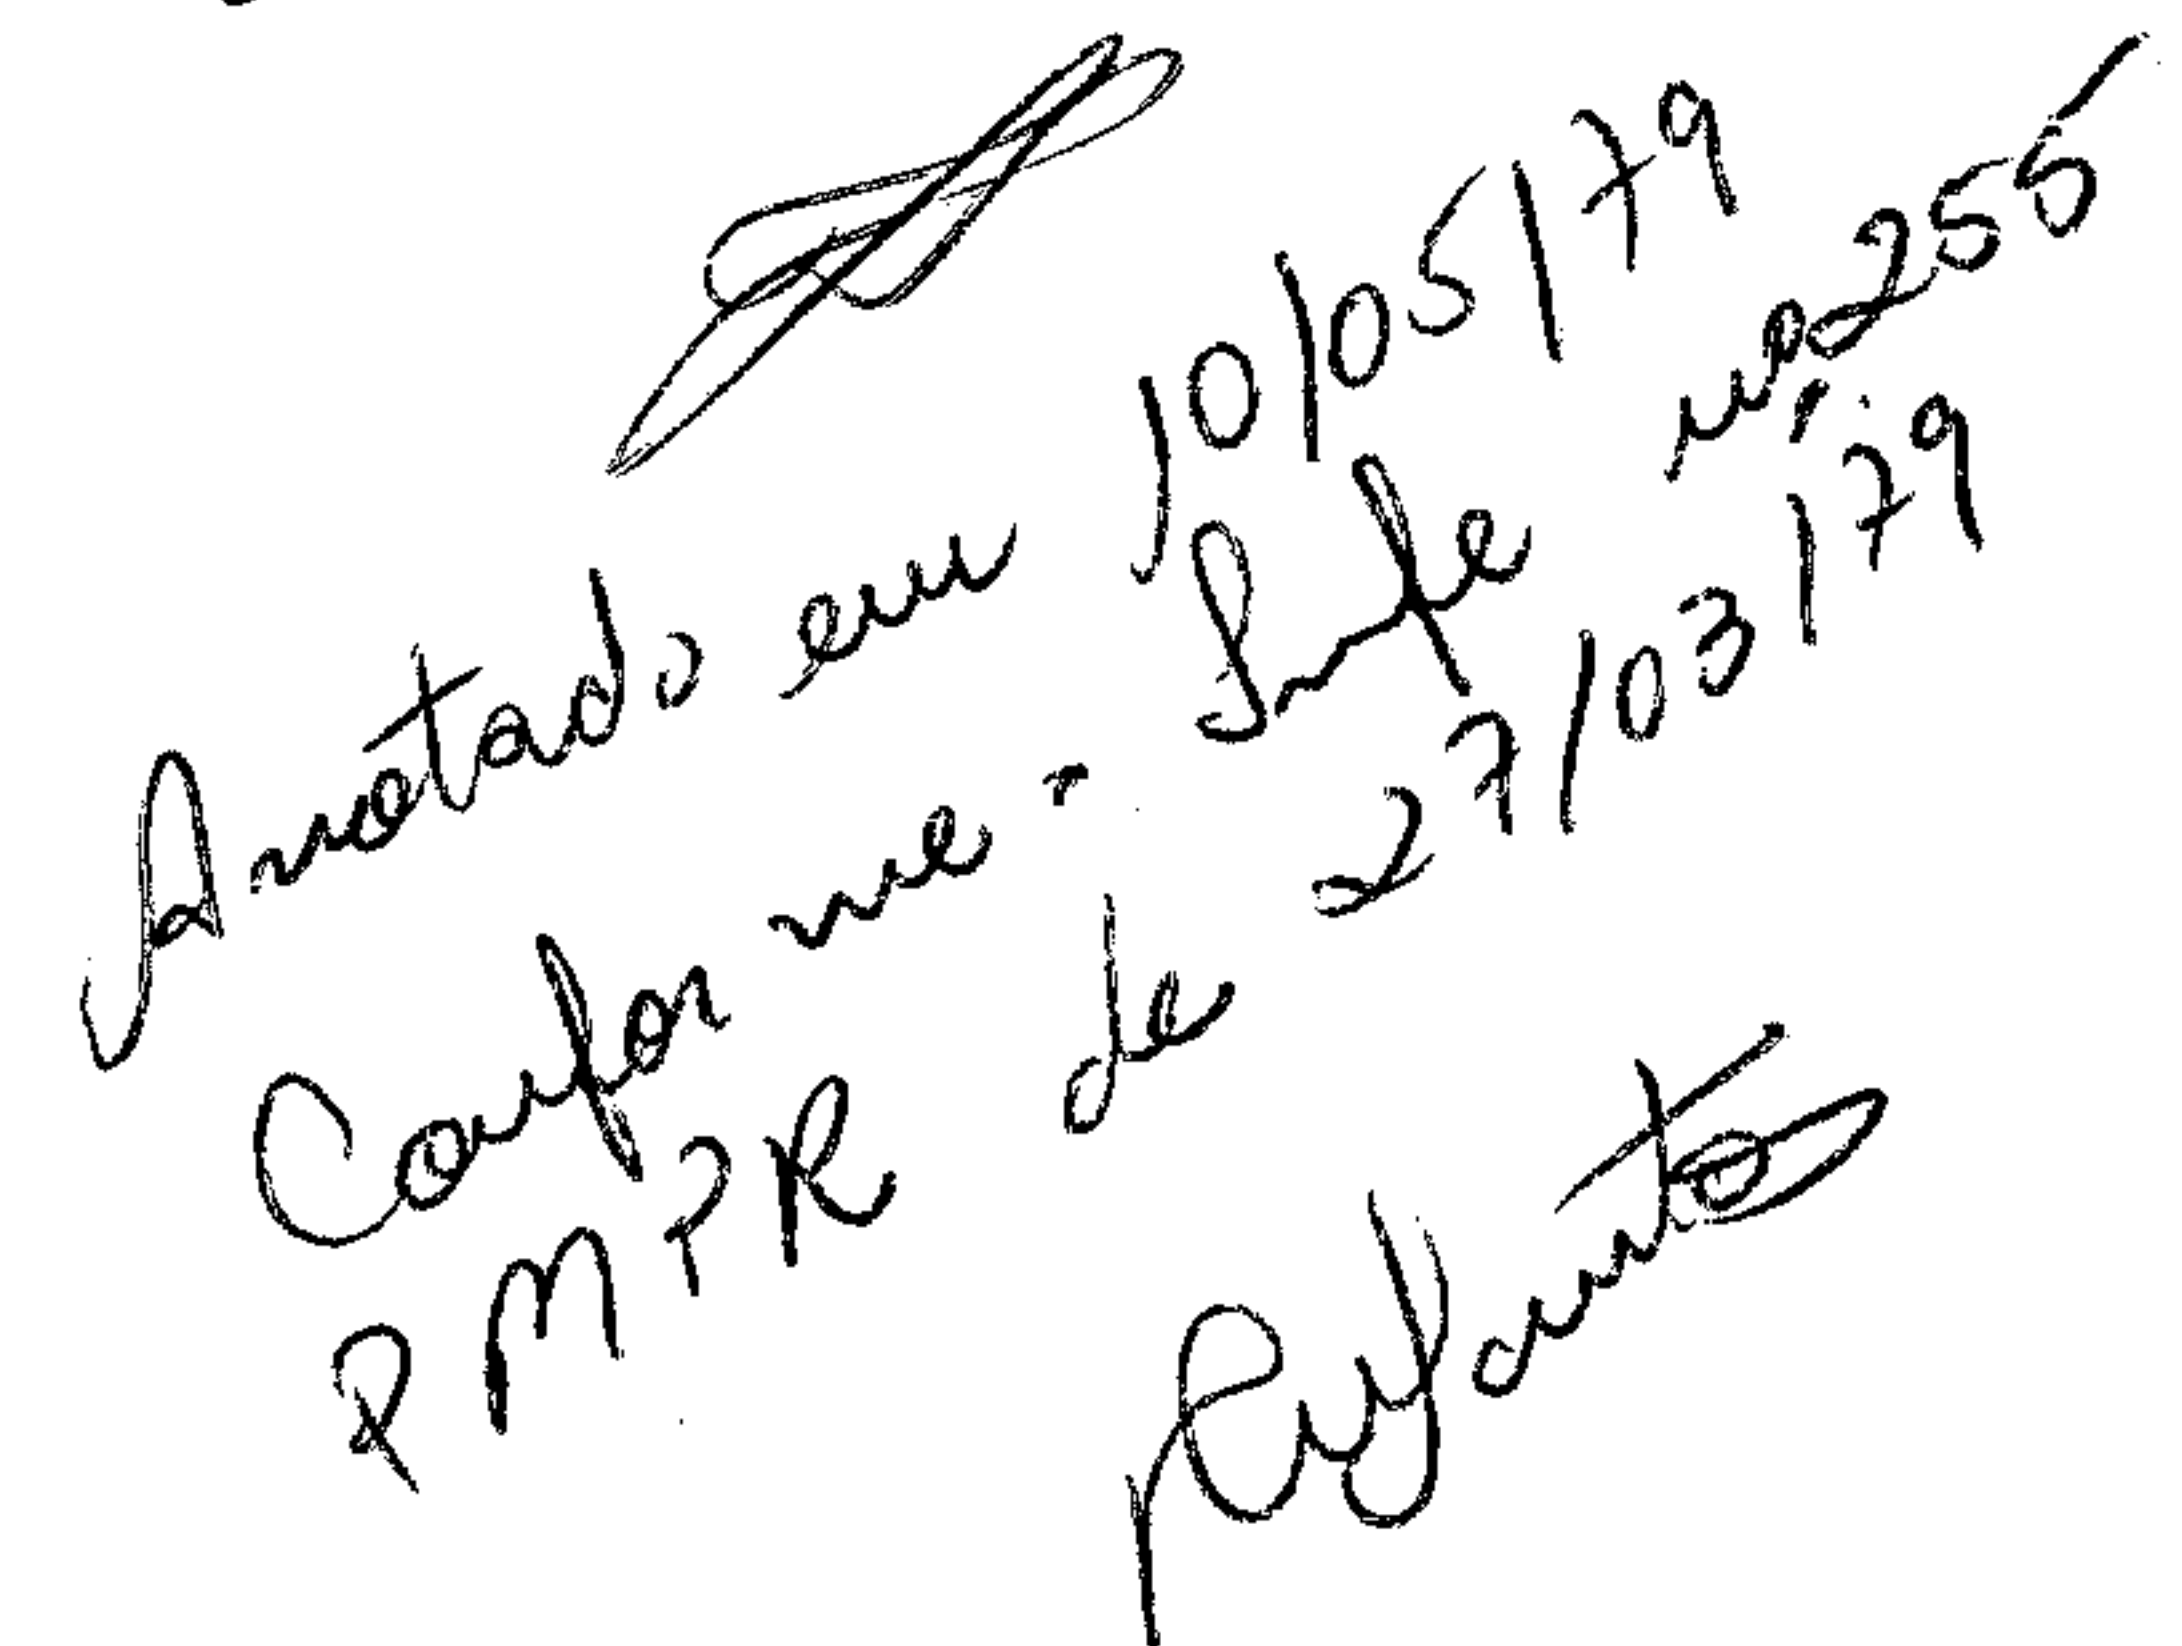 Anotado em 10/05/79
Conforme Infe nº 255/
PMPR de 27/03/79